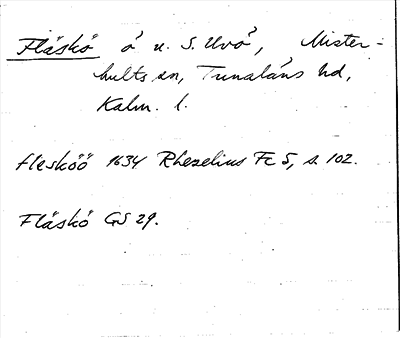 Fläskö ö u. S. Uvö, Mister-
hults sn, Tunaläns hd,
Kalm. l.
fleskööö 1634 Rhezelius Fc 5, s. 102.
Fläskö GS 29.